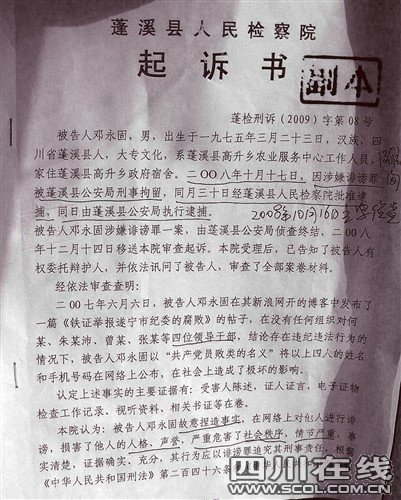 蓬溪县人民检察院
起诉书
副本
蓬检刑诉（2009）字第08号
被告人邓永固，男，出生于一九七五年三月二十三日，汉族，四
川省蓬溪县人，大专文化，系蓬溪县高升乡农业服务中心工作人员，
家住蓬溪县高升乡政府宿舍。二00八年十月十七日，因涉嫌诽谤罪
被蓬溪县公安局刑事拘留，同月三十日经蓬溪县人民检察院批准逮
捕，同日由蓬溪县公安局执行逮捕。
2008年10月16日
被告人邓永固涉嫌诽谤罪一案，由蓬溪县公安局侦查终结，二00八
年十二月十四日移送本院审查起诉。本院受理后，已告知了被告人有
权委托辩护人，并依法讯问了被告人，审查了全部案卷材料。
经依法审查查明：
二00七年六月六日，被告人邓永固在其新浪网开的博客中发布了
一篇《铁证举报遂宁市纪委的腐败》的帖子，在没有任何组织对何
某、朱某沛、曾某、张某等四位领导干部，结论存在违纪违法行为的
情况下，被告人邓永固以“共产党员败类的名义”将以上四人的姓名
和手机号码在网络上公布，在社会上造成了极坏的影响。
认定上述事实的主要证据有：受害人陈述，证人证言，电子证物
检查工作记录，视听资料，相关书证等在卷。
本院认为：被告人邓永固故意捏造事实，在网络上对他人进行诽
谤，损害了他人的人格，声誉，严重危害了社会秩序，情节严重，事
实清楚，证据确实、充分，其行为应以诽谤罪追究其刑事责任，根据
《中华人民共和国刑法》第二百四十六条
四川在线
WWW.SCOL.COM.CN